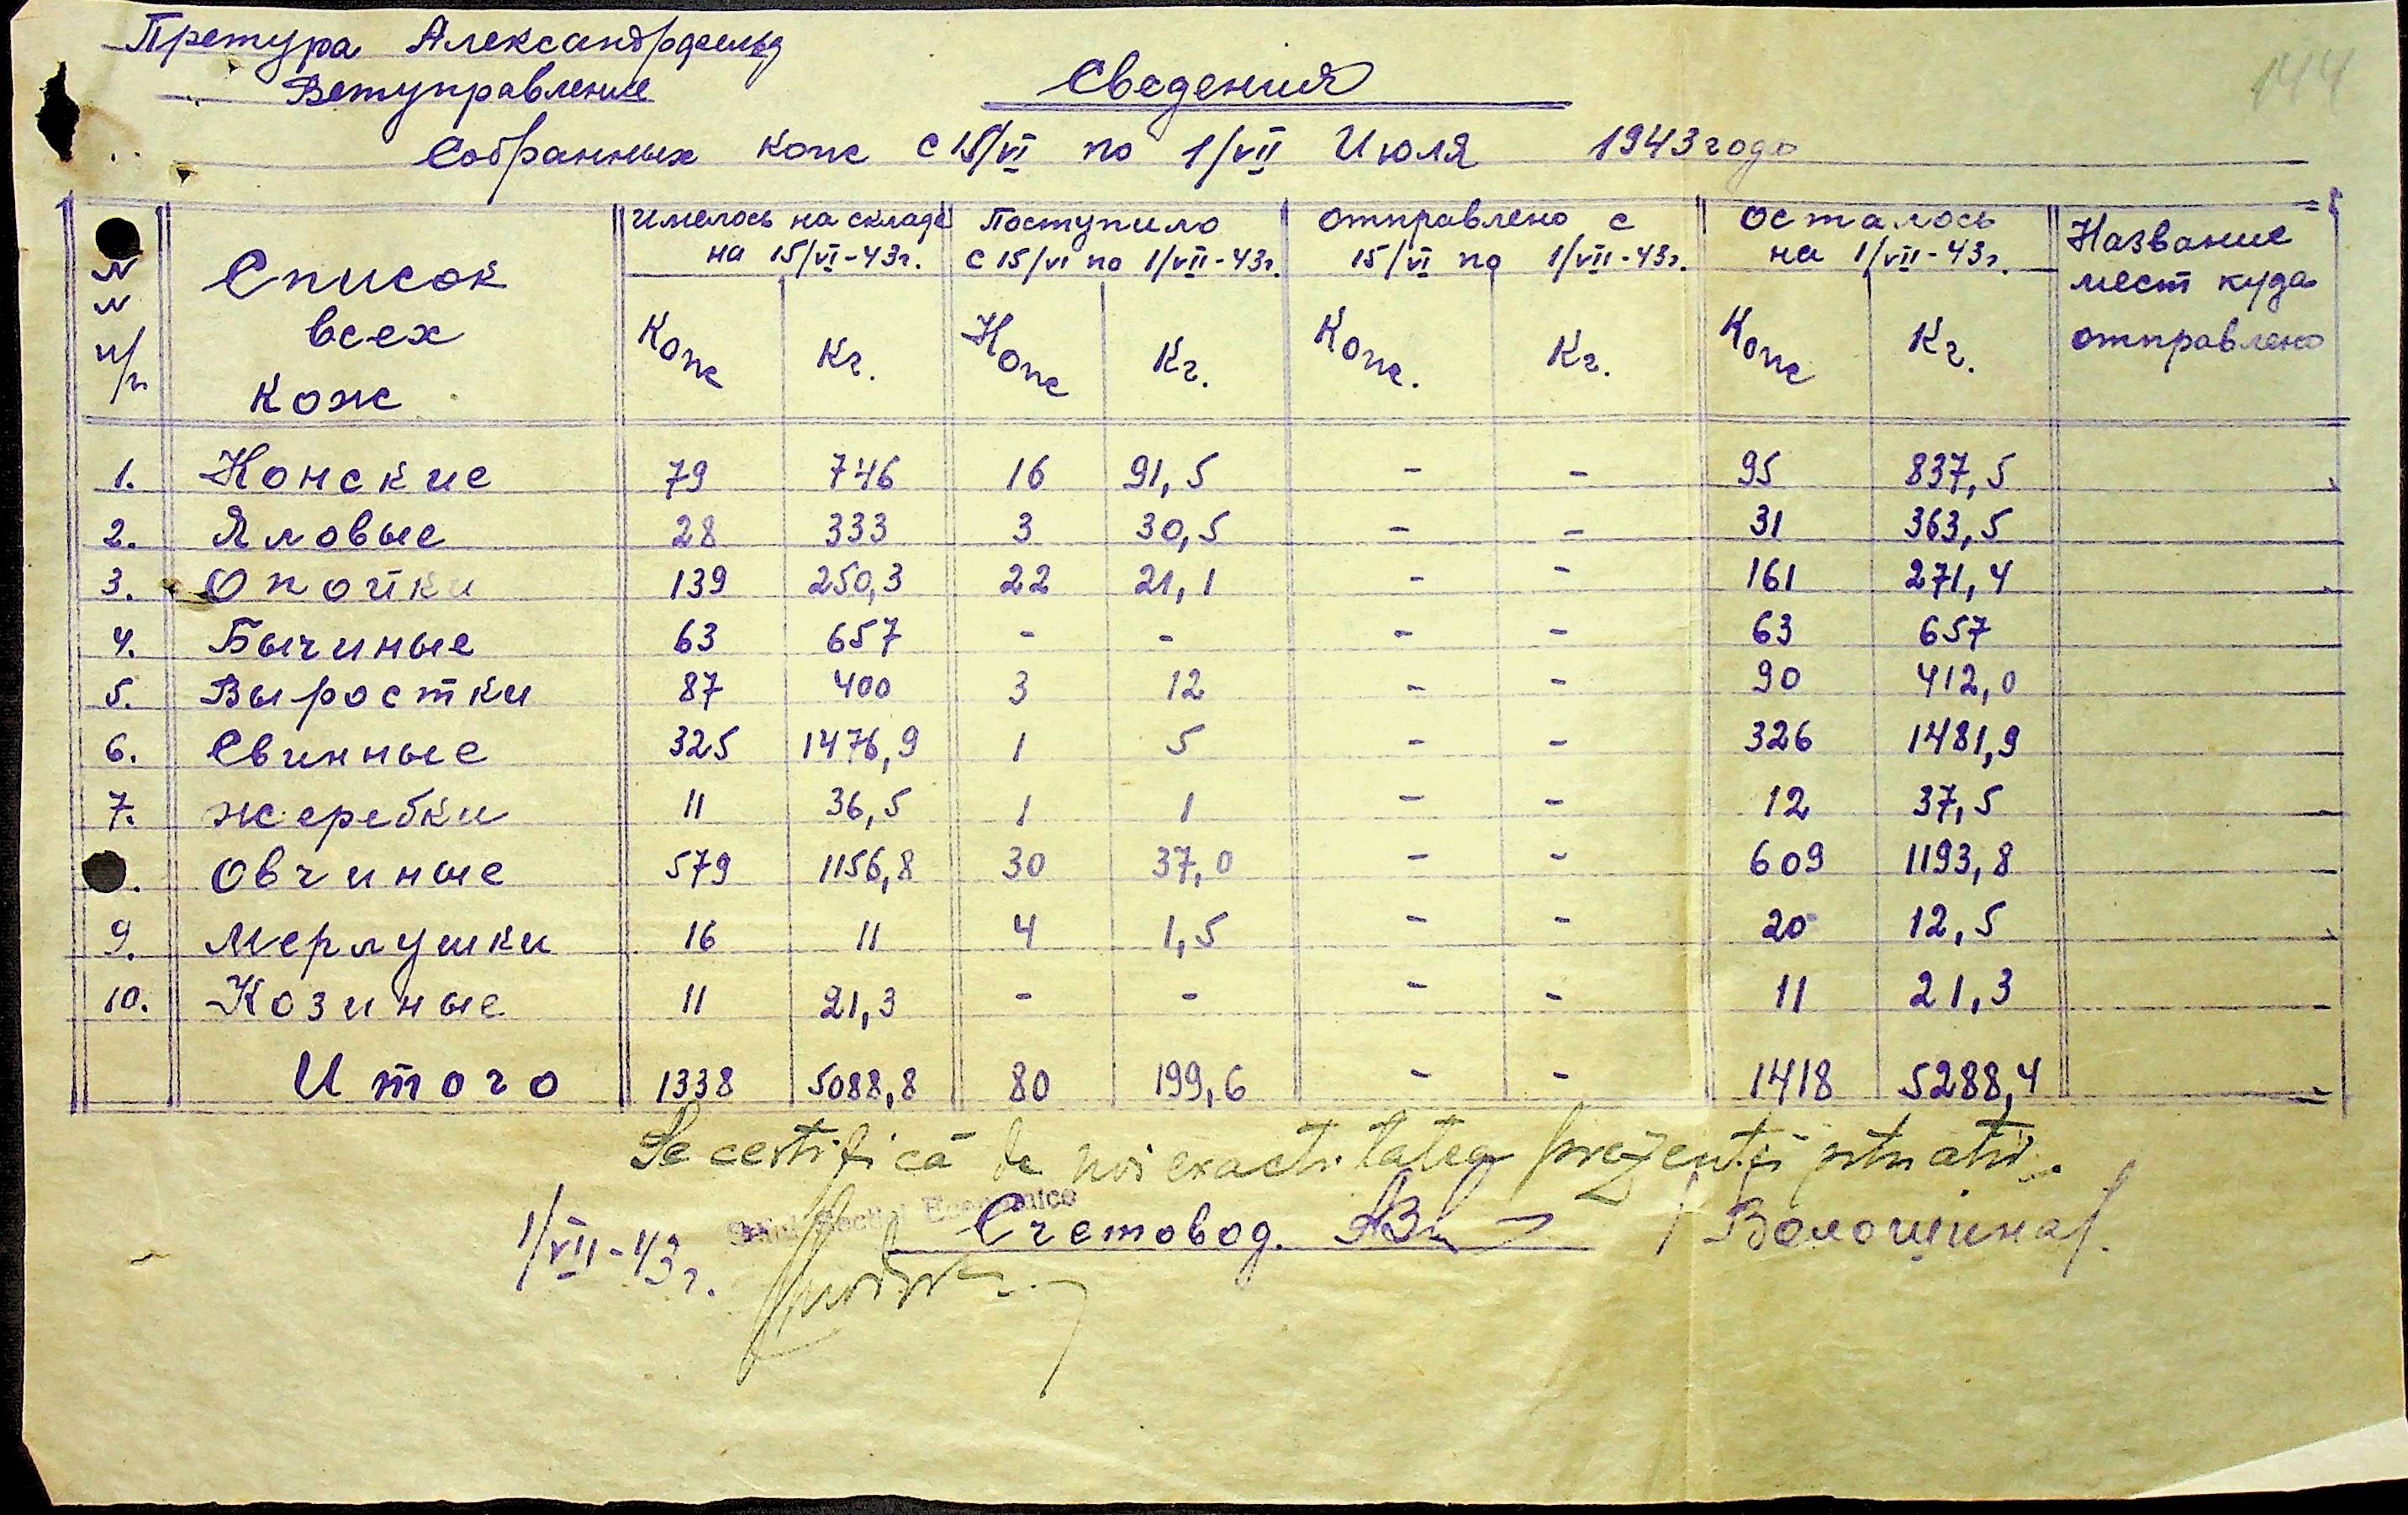 Претура Александрфельд
Ветуправление
144
Сведения
Собранных кож с 15/VI по 1/VII Июля 1943 года
N N п/п | Список всех кож | Имелось на складе на 15/VI-43г. | Поступило с 15/VI по 1/VII-43г. | Отправлено с 15/VI по 1/VII-43г. | Осталось на 1/VII-43г. | Название мест куда отправлено
Кож | Кг. | Кож | Кг. | Кож. | Кг. | Кож | Кг.
1. Конские 79 746 16 91,5 - - 95 837,5
2. Яловые 28 333 3 30,5 - - 31 363,5
3. Опойки 139 250,3 22 21,1 - - 161 271,4
4. Бычиные 63 657 - - - - 63 657
5. Выростки 87 400 3 12 - - 90 412,0
6. Свинные 325 1476,9 1 5 - - 326 1481,9
7. жеребки 11 36,5 1 1 - - 12 37,5
. Овчиные 579 1156,8 30 37,0 - - 609 1193,8
9. Мерлушки 16 11 4 1,5 - - 20 12,5
10. Козиные 11 21,3 - - - - 11 21,3
Итого 1338 5088,8 80 199,6 - - 1418 5288,4
Se certifică de noi exactitatea prezentei situatii.
1/VII-43г. Счетовод. /Волощина/.